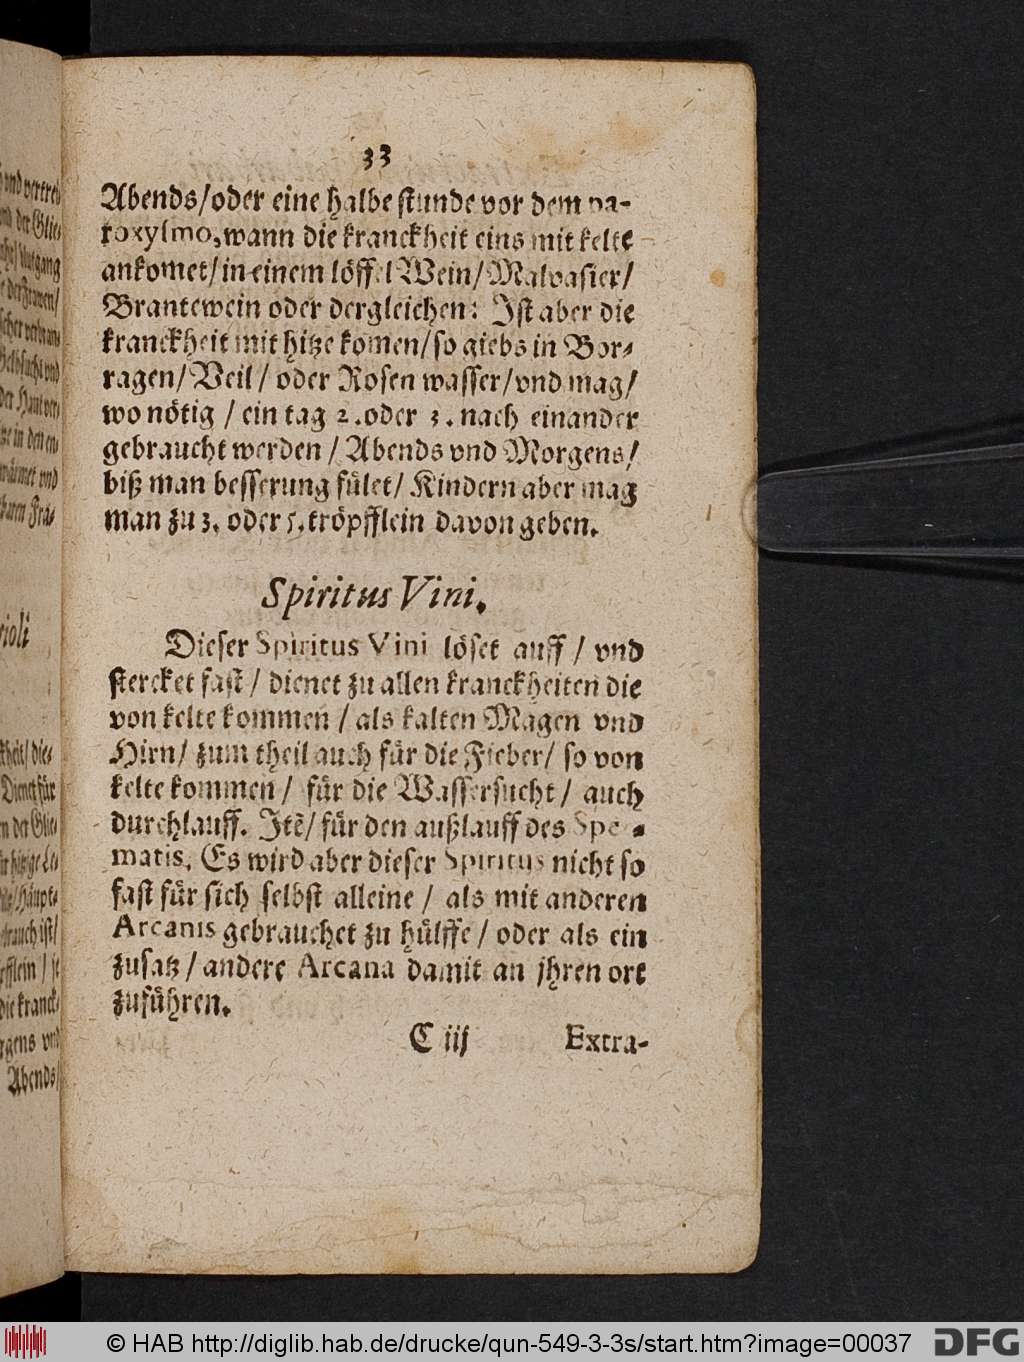 33
Abends/oder eine halbe stunde vor dem pa-
roxysmo, wann die kranckheit eins mit kelte
ankomet/ in einem löffel Wein/ Malvasier/
Brantewein oder dergleichen: Ist aber die
kranckheit mit hitze komen/ so giebs in Bor-
ragen/ Veil/ oder Rosen wasser/ vnd mag/
wo nötig / ein tag 2. oder 3. nach einander
gebraucht werden / Abends vnd Morgens/
biß man besserung fület/ Kindern aber mag
man zu 3. oder 5. tröpfflein davon geben.
Spiritus Vini.
Dieser Spiritus Vini löset auff / vnd
stercket fast / dienet zu allen kranckheiten die
von kelte kommen / als kalten Magen vnd
Hirn/ zum theil auch für die Fieber/ so von
kelte kommen / für die Wassersucht / auch
durchlauff. Itē/ für den außlauff des Sper-
matis. Es wird aber dieser Spiritus nicht so
fast für sich selbst alleine / als mit anderen
Arcanis gebrauchet zu hülffe / oder als ein
zusatz / andere Arcana damit an jhren ort
zuführen.
C iij Extra-
vnd vertreib
der Glie-
Außgang
/
vnd
der Haut ver-
in den en-
vnd
Fra-
rioli
die-
Dienet für
der Glie-
hitzige Le-
Häupt-
ist/
pfflein / ist
die kranck-
rgens vnd
Abends/
© HAB http://diglib.hab.de/drucke/qun-549-3-3s/start.htm?image=00037
DFG